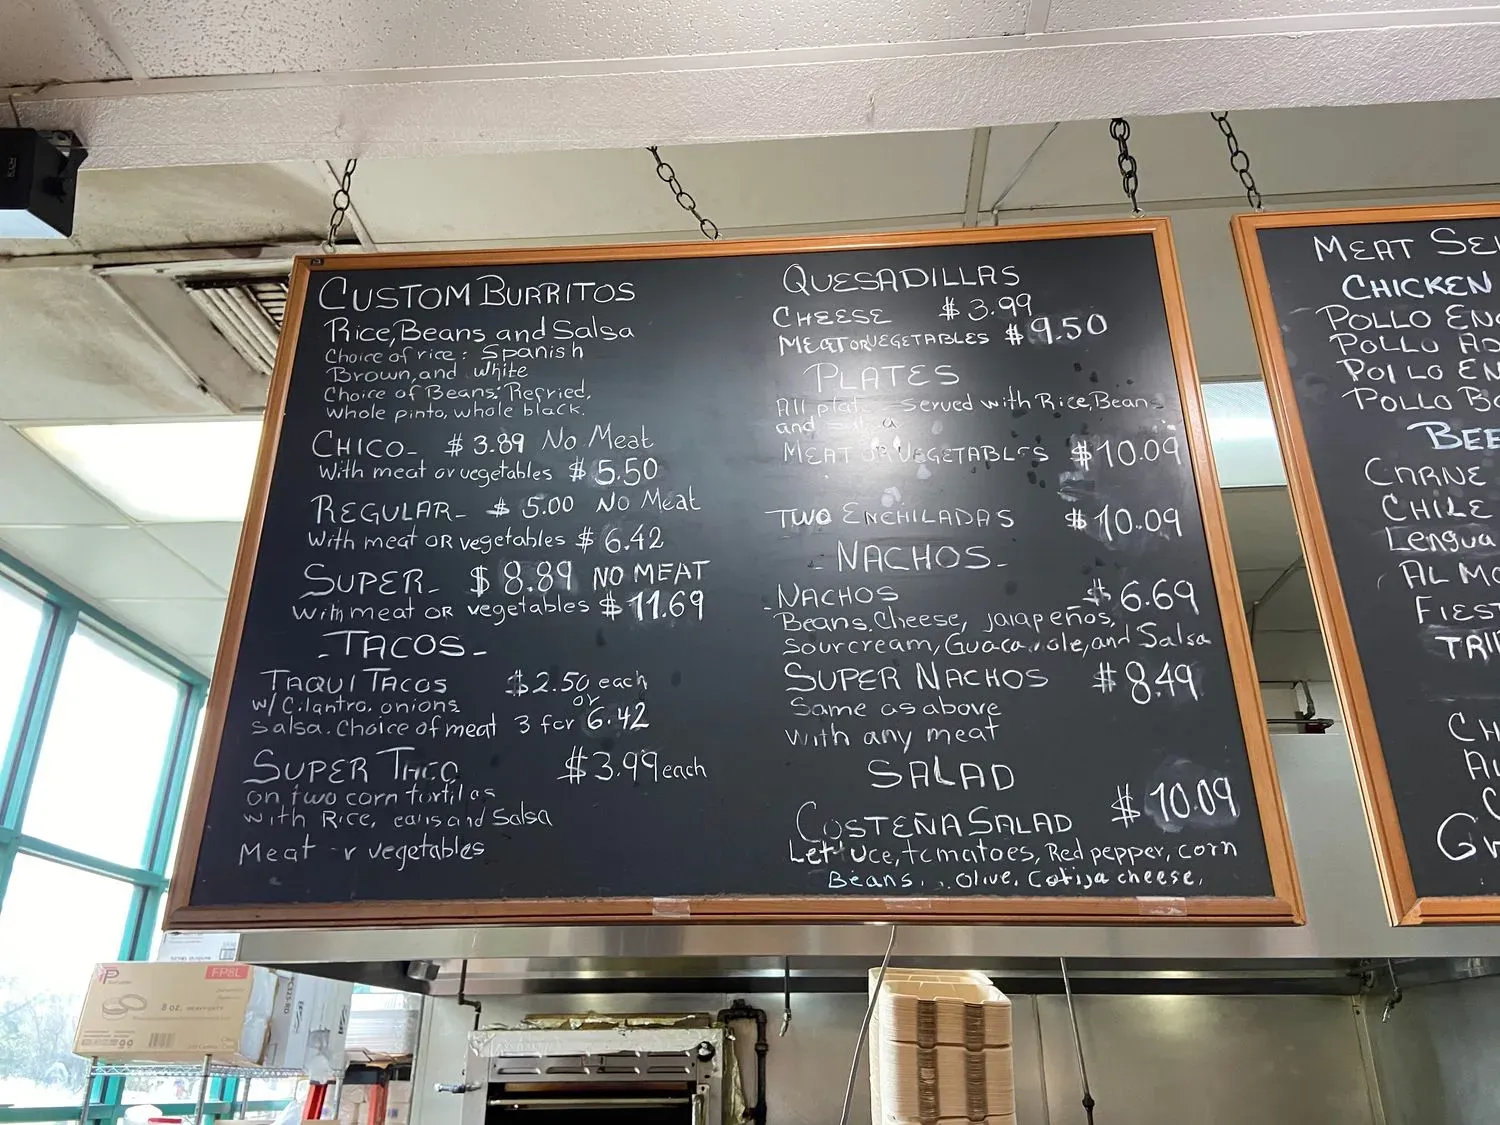 CUSTOM BURRITOS
Rice, Beans and Salsa
Choice of rice: Spanish
Brown, and white
Choice of Beans: Refried,
whole pinto, whole black.
CHICO- $3.89 No Meat
with meat or vegetables $5.50
REGULAR- $5.00 No Meat
with meat OR vegetables $6.42
SUPER- $8.89 NO MEAT
with meat OR vegetables $11.69
-TACOS-
TAQUITACOS $2.50 each
w/ Cilantro, onions or
salsa. Choice of meat 3 for 6.42
SUPER TACO $3.99 each
on two corn tortil as
with Rice, eans and Salsa
Meat r vegetables
QUESADILLAS
CHEESE $3.99
MEAT OR VEGETABLES $9.50
PLATES
All plat served with Rice, Beans
and
MEAT OR VEGETABLES $10.09
TWO ENCHILADAS $10.09
-NACHOS-
-NACHOS $6.69
Beans, Cheese, jalapeños,
sourcream, Guaca ole, and Salsa
SUPER NACHOS $8.49
Same as above
with any meat
SALAD
COSTEÑA SALAD $10.09
Lettuce, tomatoes, Red pepper, corn
Beans, Olive, Cotija cheese,
MEAT SE
CHICKEN
POLLO EN
POLLO AD
POLLO EN
POLLO BO
BEE
CARNE
CHILE
Lengua
AL MO
FIEST
TRI
CH
AL
G
C
FP8L
8 OZ.